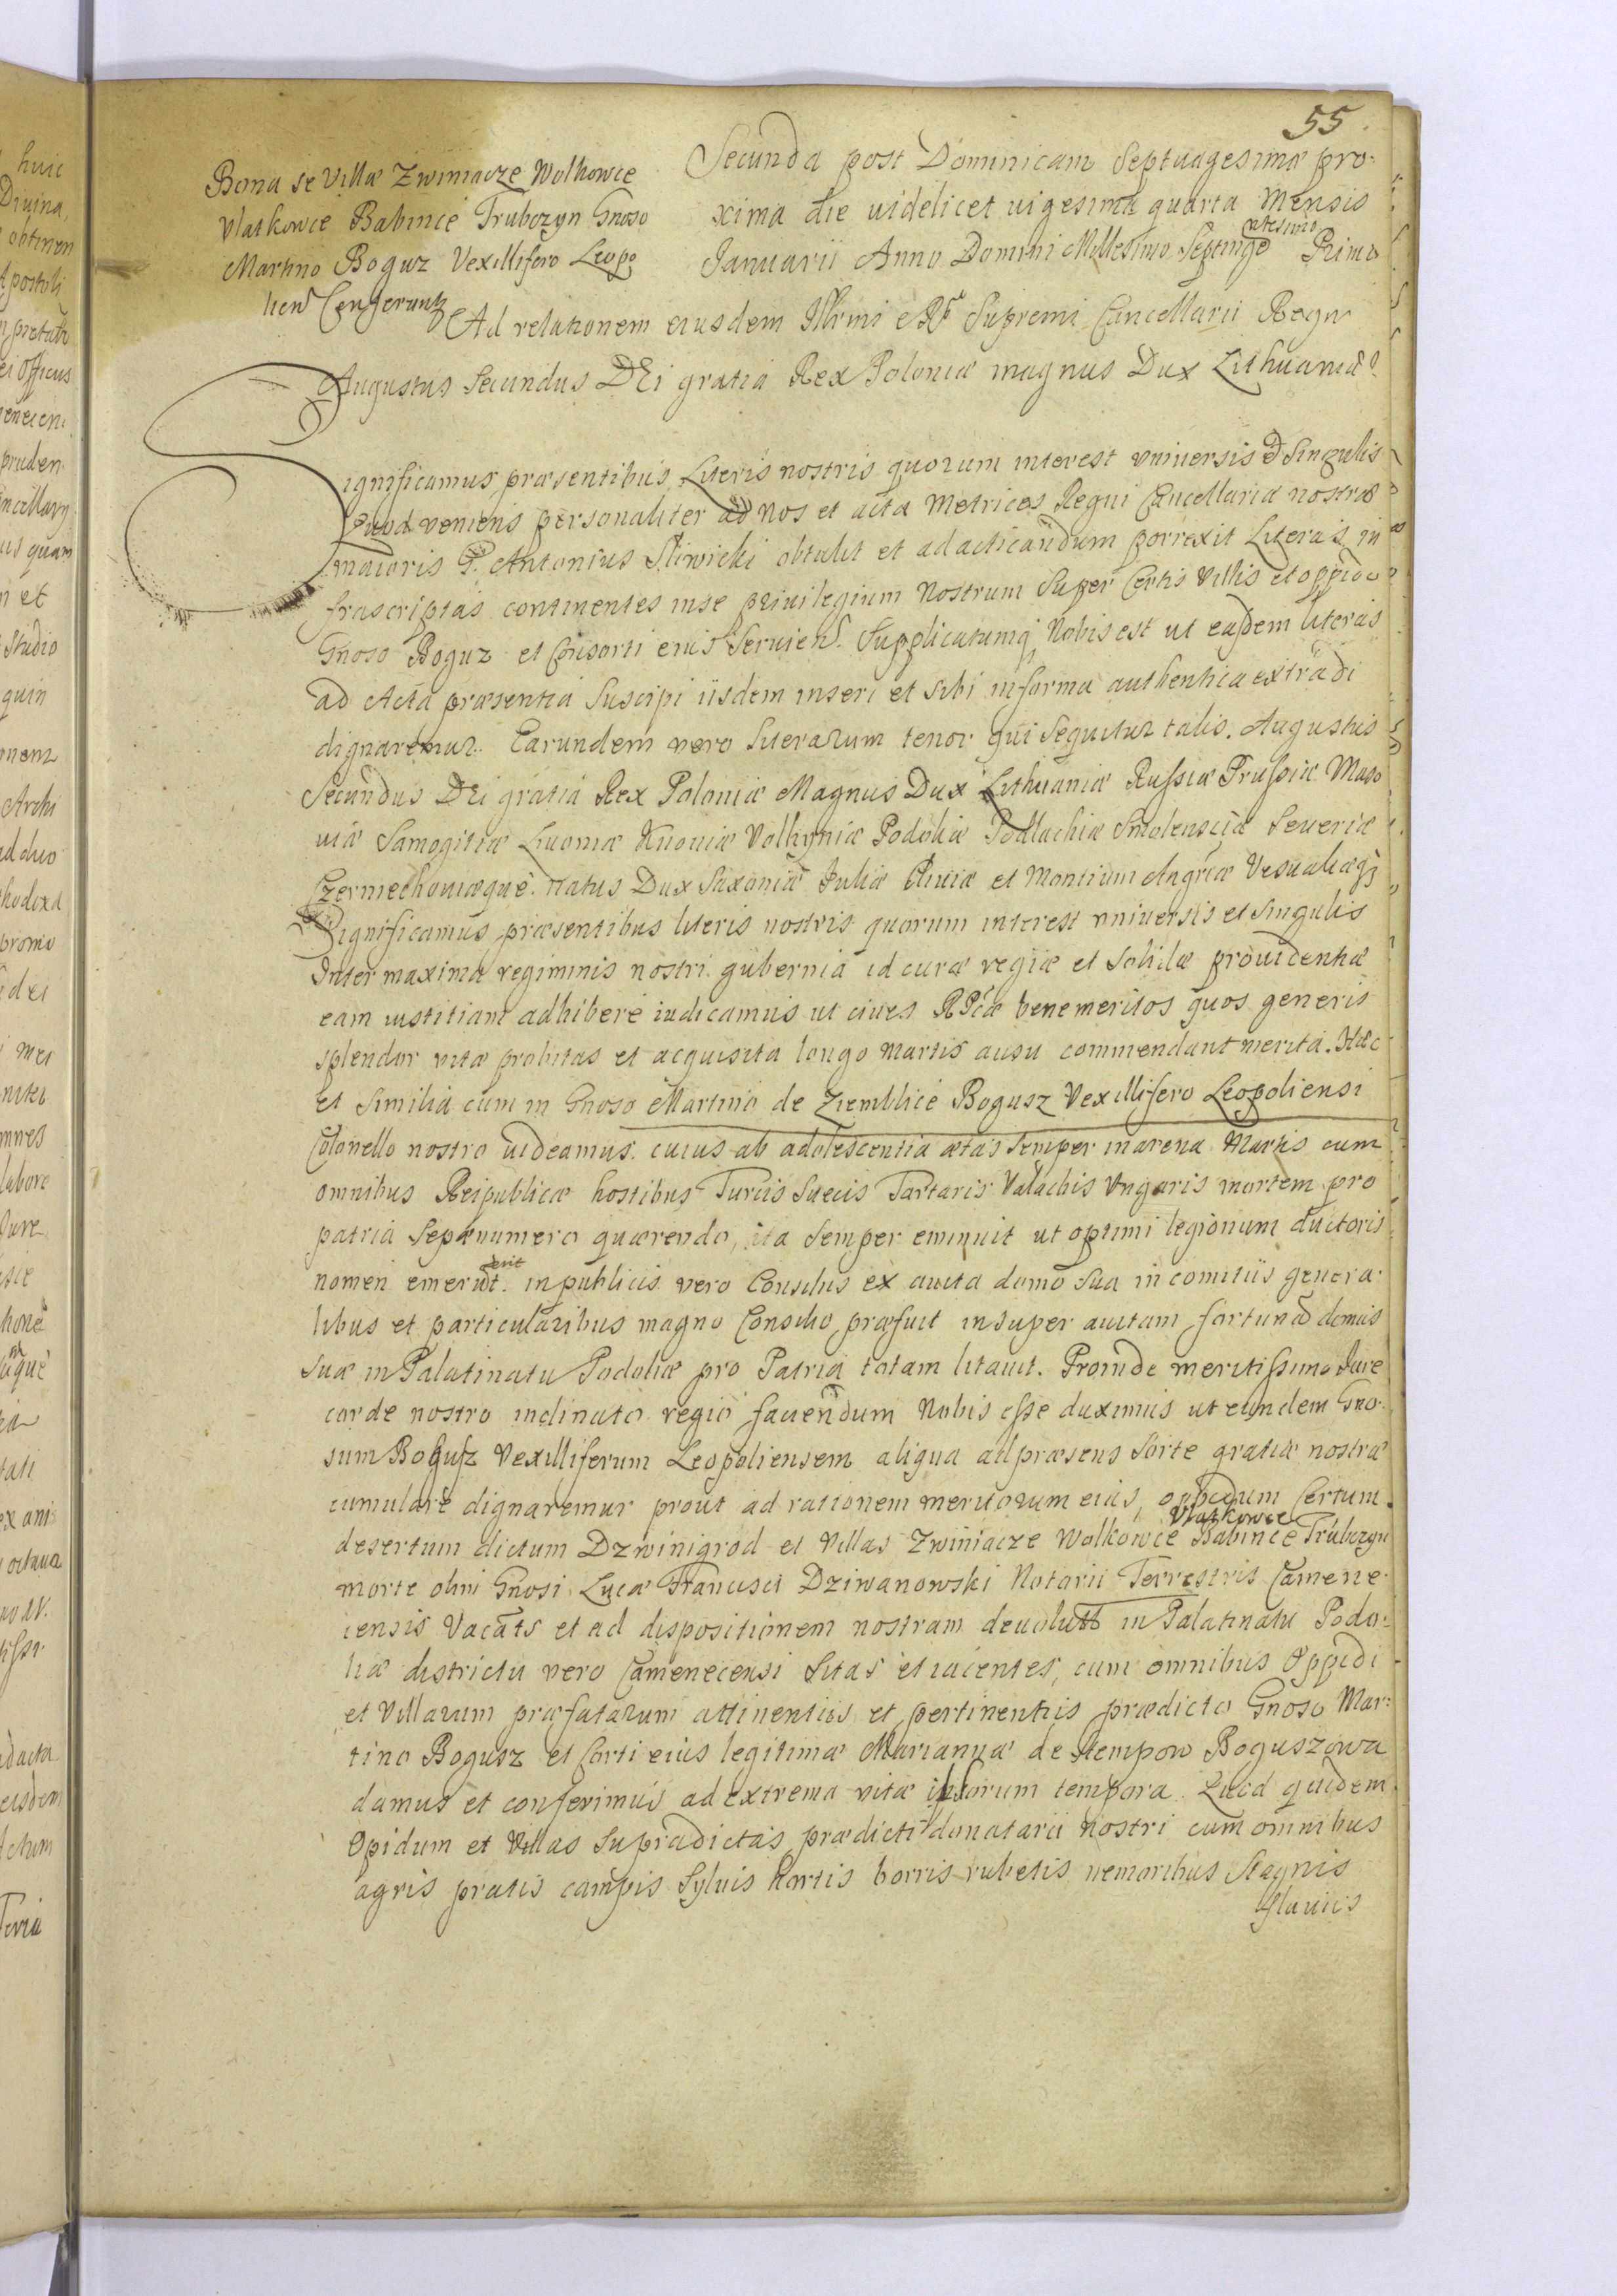 55.
Bona se Villæ Zwiniacze Wolkowce
Vlatkowce Babince Trubczyn Gnoso
Martino Bogusz Vexillifero Leopo
lien Conferuntr
Secunda post Dominicam Septuagesimæ pro
xima die uidelicet uigesima quarta Mensis
Januarii Anno Domini Millesimo Septinge ntesimo Primo
Ad relationem eiusdem Illrmi et Rdi Supremi Cancellarii Regni
Augustus Secundus DEi gratia Rex Poloniæ magnus Dux Lithuaniæ
Significamus præsentibus Literis nostris quorum interest vniuersis et Singulis
Quod veniens personaliter ad nos et acta Metrices Regni Cancellariæ nostræ
maioris G. Antonius Sliwicki obtulit et ad acticandum porrexit Literas in
frascriptas continentes inse priuilegium Nostrum Super Certis Villis et oppido
Gnoso Bogusz et Consorti eius Seruien. Supplicatumq Nobis est ut easdem literas
ad Acta præsentia Suscipi iisdem inseri et sibi in forma authentica extradi
dignaremur. Earundem vero literarum tenor qui Sequitur talis. Augustus
Secundus DEi gratia Rex Poloniæ Magnus Dux Lithuaniæ Russiæ Prussiæ Maso
uiæ Samogitiæ Liuoniæ Kiiouiæ Volhyniæ Podoliæ Podlachiæ Smolensciæ Seueriæ
Czerniechouiæque. natus Dux Saxoniæ Juliæ Cliuiæ et Montium Angriæ Vesualiæq
Significamus præsentibus literis nostris quorum interest vniuersis et Singulis
Inter maxima regiminis nostri gubernia id curæ regiæ et Solidæ prouidentiæ
eam iustitiam adhibere iudicamus ut ciues RPcæ benemeritos quos generis
splendor vitæ probitas et acquisita longo Martis ausu commendant merita. Hæc
et Similia cum in Gnoso Martino de Ziemblice Bogusz Vexillifero Leopoliensi
Colonello nostro uideamus. cuius ab adolescentia ætas Semper in arena Martis cum
omnibus Reipublicæ hostibus Turcis Suecis Tartaris Valachis Vngaris mortem pro
patria Sepænumero quærendo, ita Semper eminuit ut optimi legionum ductoris
nomen emeruit. in publicis vero Consiliis ex auita domo Sua in comitiis genera
libus et particularibus magno Consilio præfuit insuper auitam fortunam domus
Suæ in Palatinatu Podoliæ pro Patria totam litauit. Proinde meritissimo Jure
corde nostro inclinato regio fauendum Nobis esse duximus ut eundem Gno
sum Bogusz Vexilliferum Leopoliensem aliqua ad præsens Sorte gratiæ nostræ
cumulare dignaremur prout ad rationem meritorum eius, oppidum Certum
Vlatkowce
desertum dictum Dzwinigrod et Villas Zwiniacze Wolkowce Babince Trubczyn
morte olim Gnosi Lucæ Francisci Dziwanowski Notarii Terrestris Camene
censis Vacats et ad dispositionem nostram deuolutt in Palatinatu Podo
liæ districtu vero Camenecensi Sitas et iacentes, cum omnibus Oppidi
et Villarum præfatarum attinentiis et pertinentiis prædicto Gnoso Mar
tino Bogusz et Corti eius legitimæ Mariannæ de Stempow Boguszowa
damus et conferimus ad extrema vitæ ipsorum tempora. Quod quidem
Opidum et Villas Supradictas prædicti donatarii nostri cum omnibus
agris pratis campis Syluis hortis borris rubetis nemoribus Stagnis
fluuiis